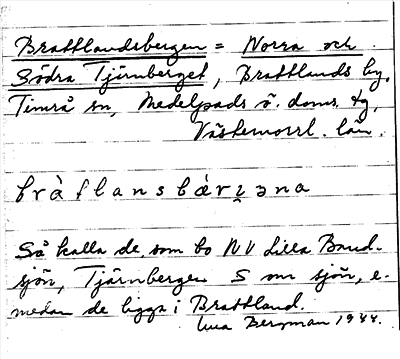 Brattlandsbergen = Norra och
Södra Tjärnberget, Brattlands by,
Timrå sn, Medelpads ö. doms. tg,
Västernorrl. län.
bràtlansbǽrʒ̣əna
Så kalla de, som bo NV Lilla Band-
sjön, Tjärnbergen S om sjön, e-
medan de ligga i Brattland.
Bergman 1944.